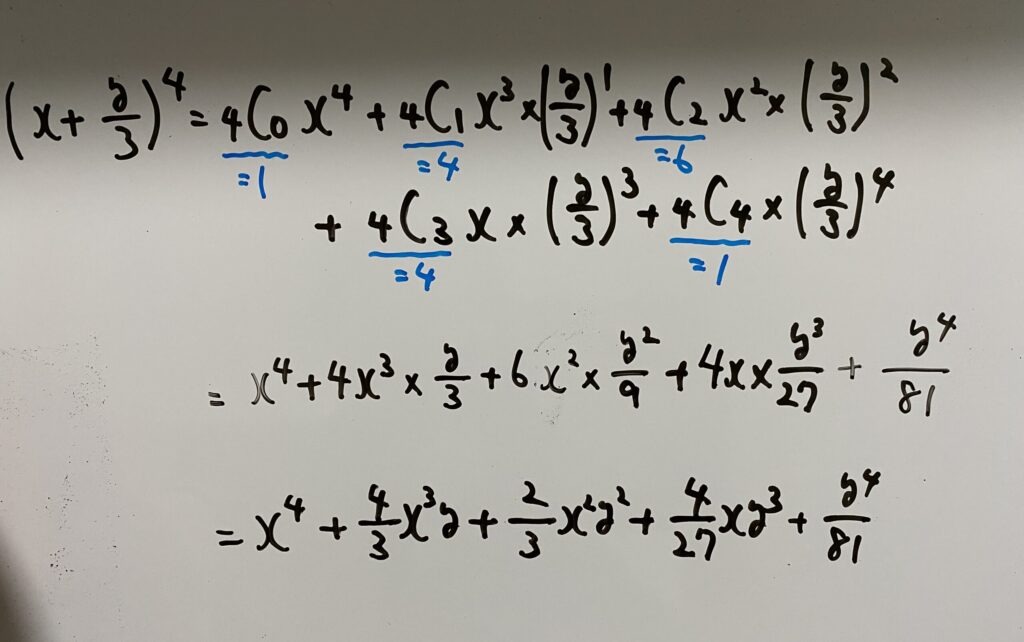 (x + y/3)^4 = 4C0 x^4 + 4C1 x^3 × (y/3)^1 + 4C2 x^2 × (y/3)^2
=1 =4 =6
+ 4C3 x × (y/3)^3 + 4C4 × (y/3)^4
=4 =1
= x^4 + 4x^3 × y/3 + 6x^2 × y^2/9 + 4x × y^3/27 + y^4/81
= x^4 + 4/3 x^3y + 2/3 x^2y^2 + 4/27 xy^3 + y^4/81